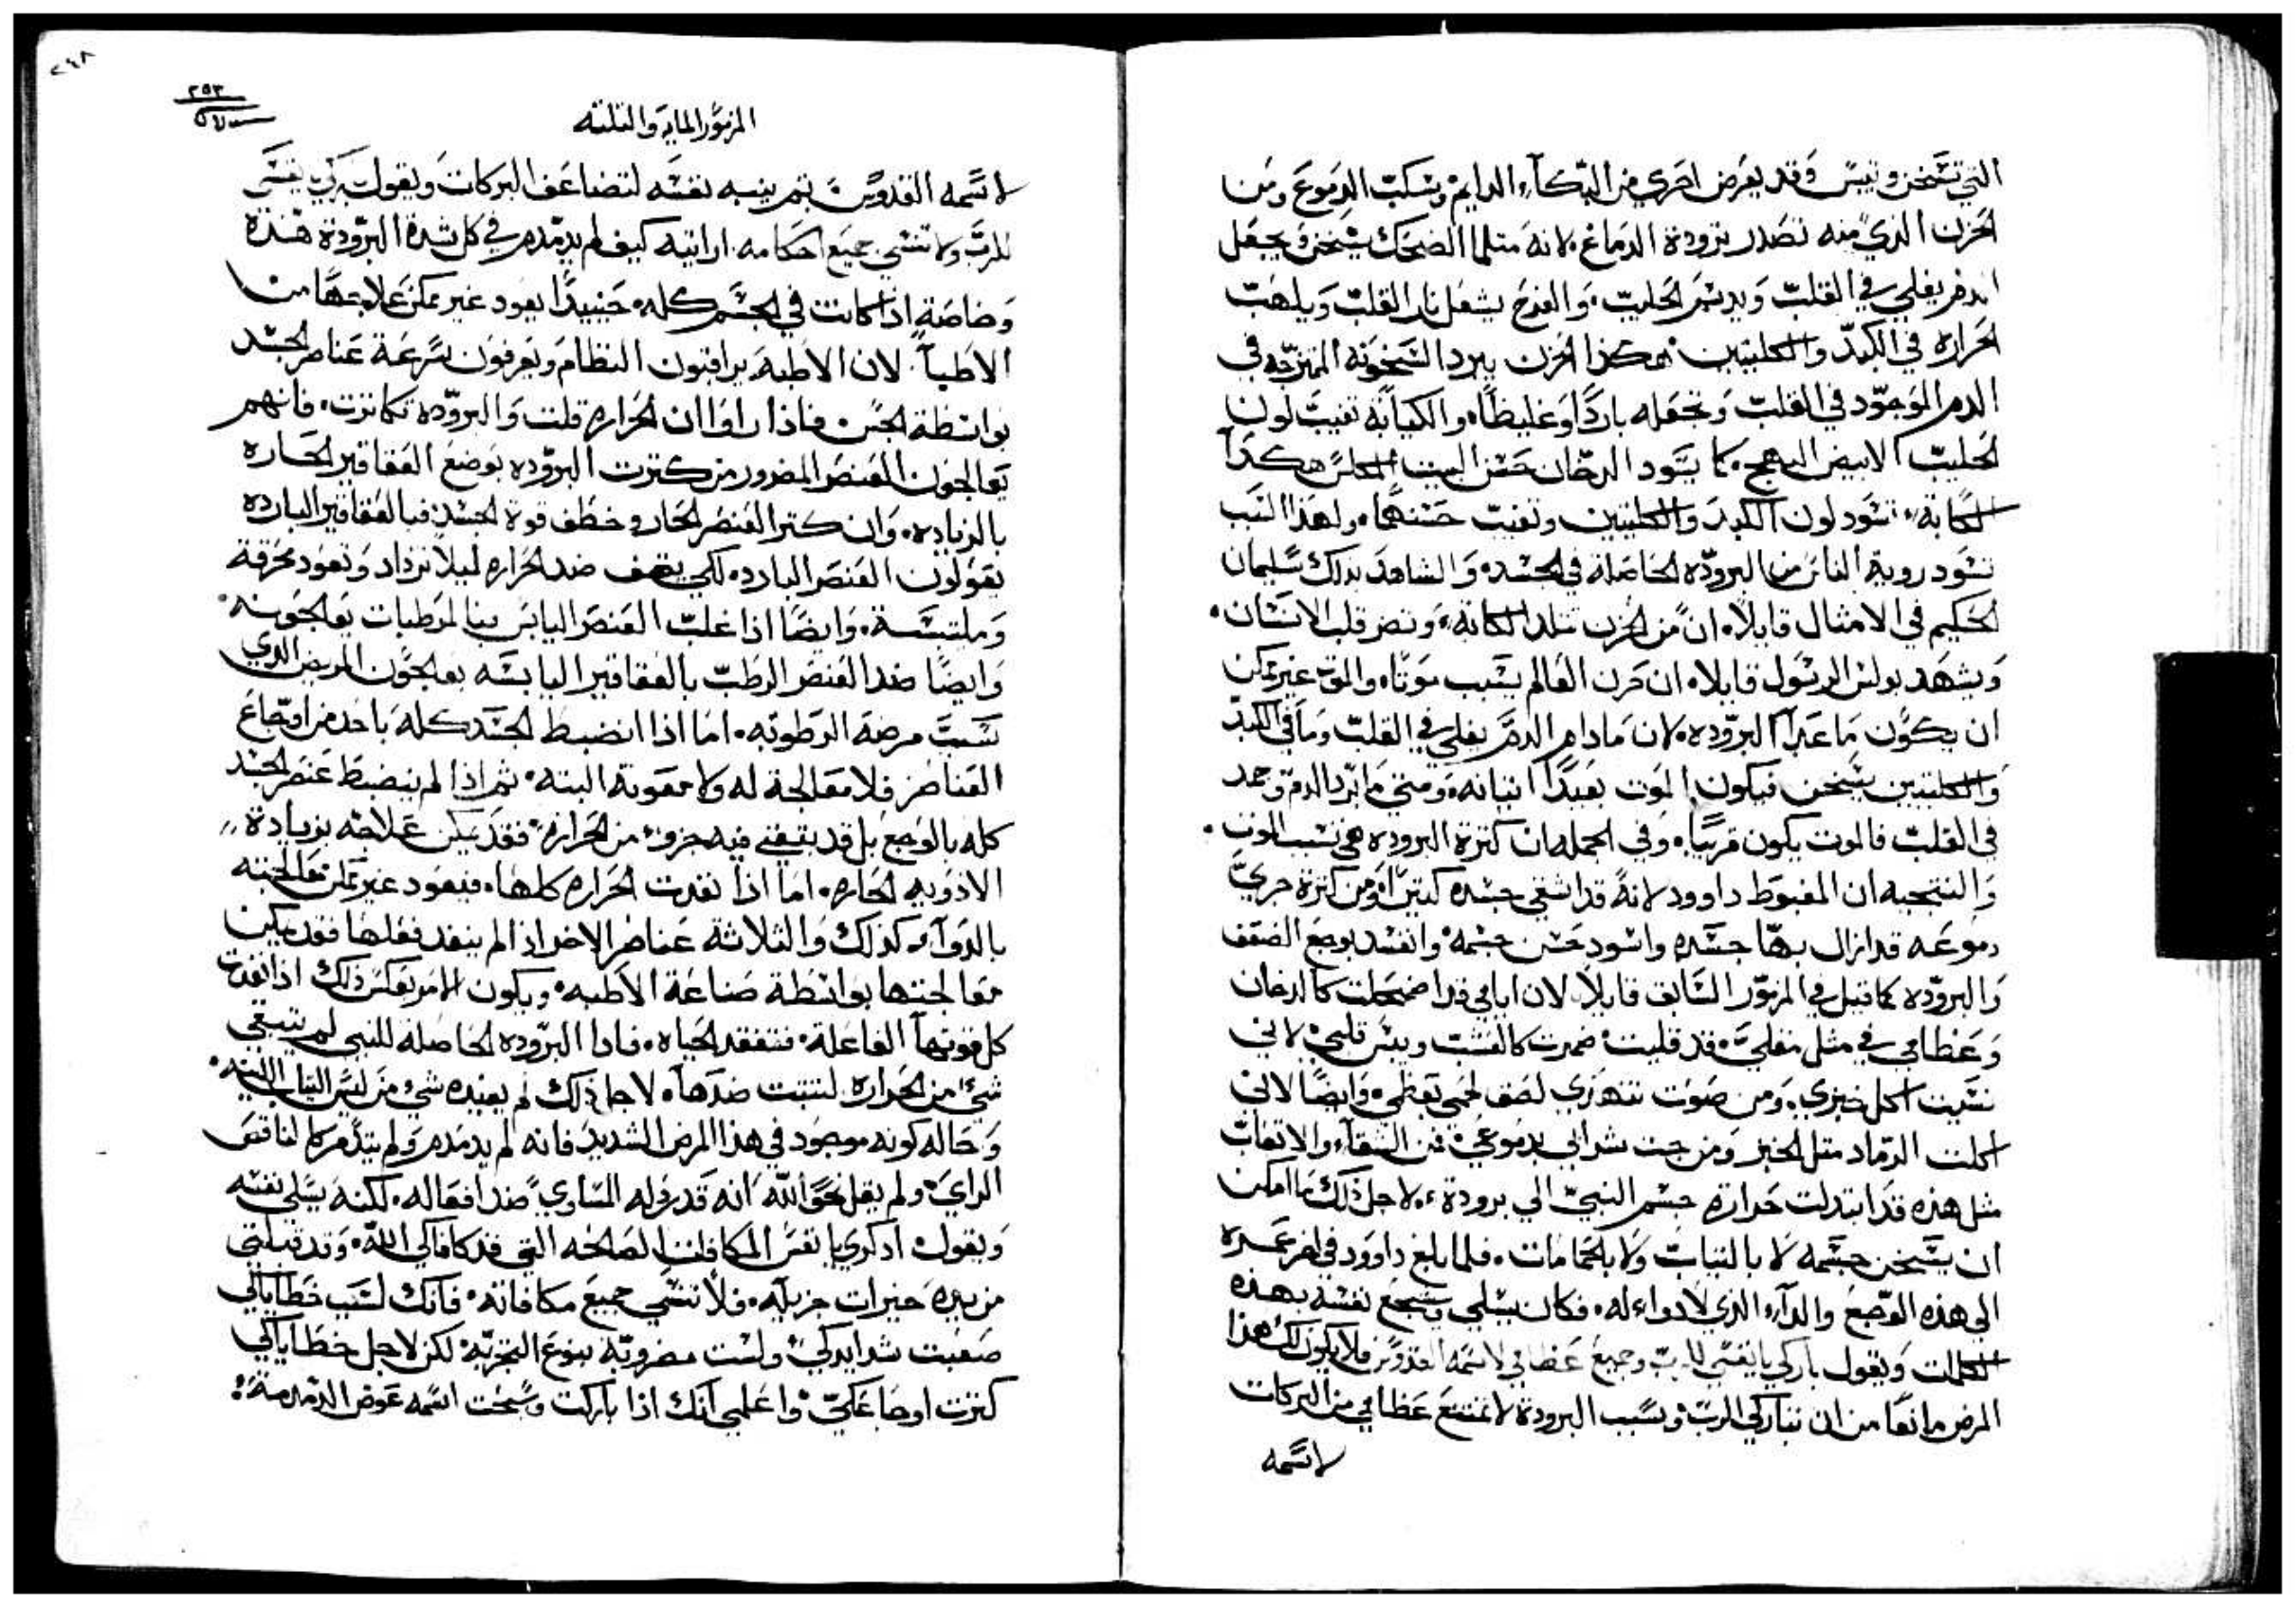 التي تسخن وتيبس وقد يعرض اخري من البكآء الدايم وسكب الدموع ومن
الحزن الذي منه تصدر برودة الدماغ لانه مثلما الضحك يسخن ويجعل
الدم يغلي في القلب ويدسم الحليب والفرح يشعل نار القلب ويلهب
الحراره في الكبد والكليتين هكذا الحزن يبرد السخونه الممتزجه في
الدم الموجود في القلب ويجعله باردًا وغليظًا والكيابه تغيب لون
الحليب الابيض البهج كما يسود الدخان حسن البيت المكلس هكذا
الكابة تسود لون الكبد والكليتين وتغيب حسنهما ولهذا السبب
تسود روية الناس من البروده الحاصله في الجسد والشاهد بذلك سليمان
الحكيم في الامثال قايلا ان من الحزن تتلد الكابه وتضر قلب الانسان
ويشهد بولس الرسول قايلا ان حزن العالم يسبب موتا والموت غير ممكن
ان يكون ما عدا البروده لان مادام الدم يغلي في القلب وما في الكبد
والكليتين يسخن فيكون الموت بعيدًا اتيانه ومتي ما برد الدم وجمد
في القلب فالموت يكون قريبًا وفي الجمله ان كثرة البروده هي تسبب الموت
والنتيجه ان المغبوط داوود لانه قد اشقي جسده كثيرًا ومن كثرة جري
دموعه قد ازال بها جسده واسود حسن جسمه وانفسد بوجع الضعف
والبروده كما قيل في المزمور السابق قايلا لان ايامي قد اضمحلت كالدخان
وعظامي في مثل مقلي قد قليت ضمرت كالعشب ويبس قلبي لاني
نسيت اكل خبزي ومن صوت تنهدي لصق لحمي بعظمي وايضًا لاني
اكلت الرماد مثل الخبز ومزجت شرابي بدموعي فمن الشقاء والاتعاب
مثل هذه قد ابتدلت حرارة جسم النبي الي برودة ولاجل ذلك ما امكن
ان يسخن جسمه لا بالثياب ولا بالحمامات فلما بلغ داوود في اخر عمره
الي هذه الوجع والدآء الذي لا دواء له فكان يسلي ويشجع نفسه بهذه
الكلمات ويقول باركي يا نفسي للرب وجميع عظامي لاسمه القدوس فلا يكون لك هذا
المرض مانعًا من ان تباركي الرب وبسبب البرودة لا تمتنع عظامي من البركات
لاسمه
٢٥٣
المزمور المايه والثلثه
لاسمه القدوس ثم ينبه نفسه لتضاعف البركات ويقول باركي يا نفسي
للرب ولا تنسي جميع احكامه ارايته كيف لم يدمدم في كل شدة البرودة هذه
وخاصة اذا كانت في الجسم كله حينيذًا يعود غير ممكن علاجها من
الاطبآ لان الاطبه يراقبون النظام ويعرفون بسرعة عناصر الجسد
بواسطة الجس فاذا راوا ان الحراره قلت والبروده تكاثرت فانهم
يعالجون العنصر المضرور من كثرت البروده بوضع العقاقير الحاره
بالزياده وان كثر العنصر الحار وخطف قوة الجسد فبالعقاقير البارده
يقولون العنصر البارد لكي يقف ضد الحراره ليلا تزداد وتعود محرقة
وملتبسة وايضًا اذا غلب العنصر اليابس فبالمرطبات يعالجونه
وايضًا ضد العنصر الرطب بالعقاقير اليابسه يعالجون المريض الذي
تسبب مرضه الرطوبه اما اذا انضبط الجسد كله باحد من اوجاع
العناصر فلا معالجة له ولا معونة البته ثم اذا لم ينضبط عنصر الجسد
كله بالوجع بل قد يتبقي فيه جزوء من الحرارة فقد يمكن علاجه بزيادة
الادويه الحاره اما اذا نفدت الحراره كلها فيعود غير ممكن معالجته
بالدوآء كذلك والثلاثة عناصر الاخر اذا لم ينفد فعلها فقد يمكن
معالجتها بواسطة صناعة الاطبه ويكون الامر بعكس ذلك اذا نفدت
كل قوتها الفاعلة فتفقد الحياه فاذا البروده الحاصله للنبي لم يتبقي
شيء من الحراره لتثبت ضدها لاجل ذلك لم يفيده شيء من لبس الثياب اللينه
وحاله كونه موجود في هذا المرض الشديد فانه لم يدمدم ولم يتذمر كالناقص
الراي ولم يقل نحو الله انه قد رد له المساوي ضد افعاله لكنه يسلي نفسه
ويقول اذكري يا نفس المكافات الصالحه التي قد كافاكي الله وقد قبلتي
من يده خيرات جزيله فلا تنسي جميع مكافاته فانك لسبب خطاياكي
صعبت شدايدكي ولست مضروبه بنوع التجربه لكن لاجل خطاياكي
كثرت اوجاعكي واعلمي انك اذا باركت وسبحت اسمه عوض الدمدمة